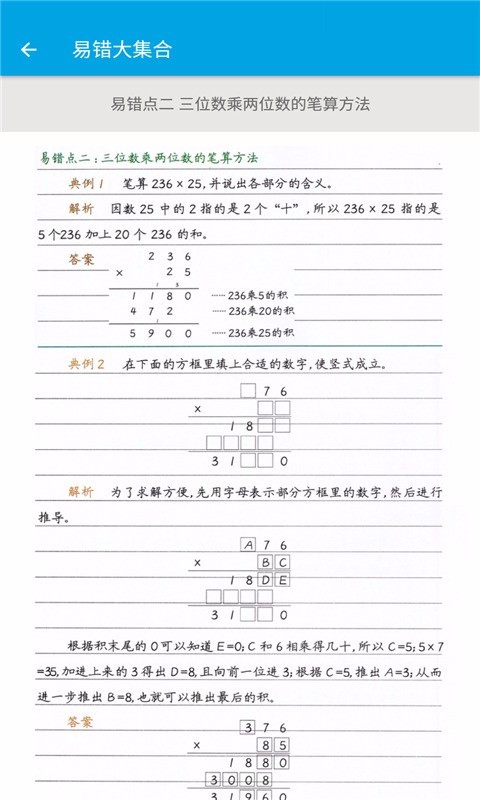 易错大集合
易错点二 三位数乘两位数的笔算方法
易错点二:三位数乘两位数的笔算方法
典例1 笔算236×25,并说出各部分的含义。
解析 因数25中的2指的是2个“十”,所以236×25指的是
5个236加上20个236的和。
答案 2 3 6
× 2 5
1 3
1 1 8 0 ……236乘5的积
4 7 2 ……236乘20的积
1
5 9 0 0 ……236乘25的积
典例2 在下面的方框里填上合适的数字,使竖式成立。
□ 7 6
× □ □
1 8 □ □
□ □ □ □
3 1 □ □ 0
解析 为了求解方便,先用字母表示部分方框里的数字,然后进行
推导。
A 7 6
× B C
1 8 D E
□ □ □ □
3 1 □ □ 0
根据积末尾的0可以知道E=0;C和6相乘得几十,所以C=5;5×7
=35,加进上来的3得出D=8,且向前一位进3;根据C=5,推出A=3;从而
进一步推出B=8,也就可以推出最后的积。
答案 3 7 6
× 8 5
1 8 8 0
3 0 0 8
3 1 9 6 0